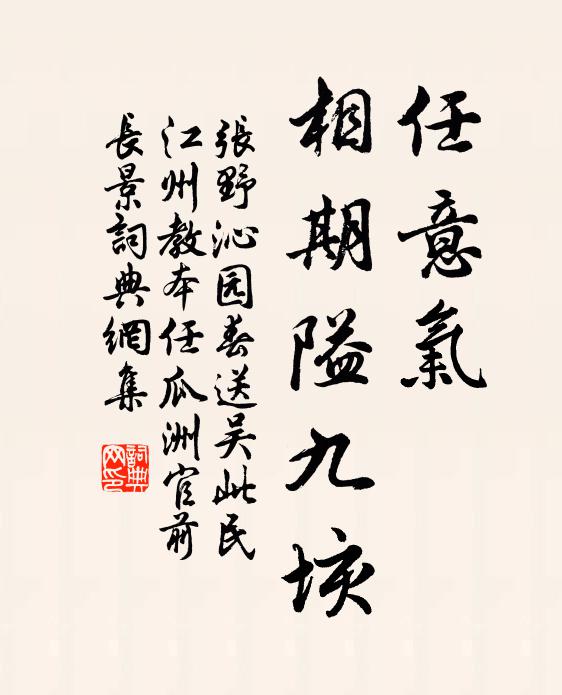 任意氣
相期隘九垓
張野沁园春送吴此民
江州教本任瓜洲官前
長景詞典網集
詞典網印